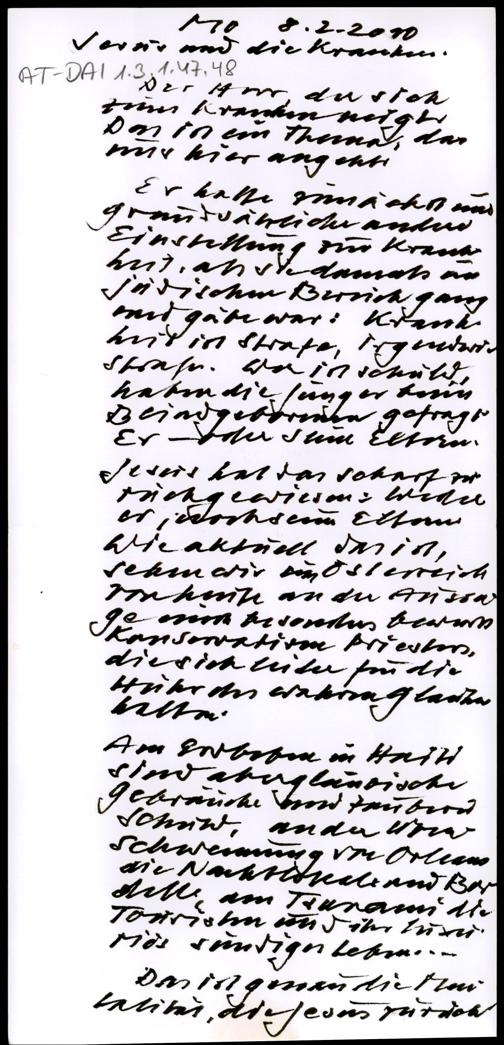 Mo 8.2-2010
Jesus und die Kranken.
AT-DAI 1.3.1.47.48
Der Herr, der sich
zum Kranken neigt
Das ist ein Thema, das
uns hier angeht.
Er hatte zunächst eine
grundsätzliche andere
Einstellung zur Krank
heit, als sie damals im
jüdischen Bereich gang
und gäbe war: Krank
heit ist Strafe, irgendwie
Strafe. Wer ist schuld,
haben die Jünger beim
Blindgeborenen gefragt
Er oder seine Eltern.
Jesus hat das scharf zu
rückgewiesen: Weder
er, noch seine Eltern
Wie aktuell das ist,
sehen wir in Österreich
von heute an der Aussa
ge eines besonders
konservativen Priesters,
die sich leider für die
Hüter des wahren Glauben
halten.
Am Erdbeben in Haiti
sind abergläubische
Gebräuche und Zauberei
schuld, an der Über
schwemmung von Orleans
die Nachtlokale und Bor
delle, am Tsunami die
Touristen und ihr luxu
riös sündiges Leben...
Das ist genau die Men
talität, die Jesus zurück